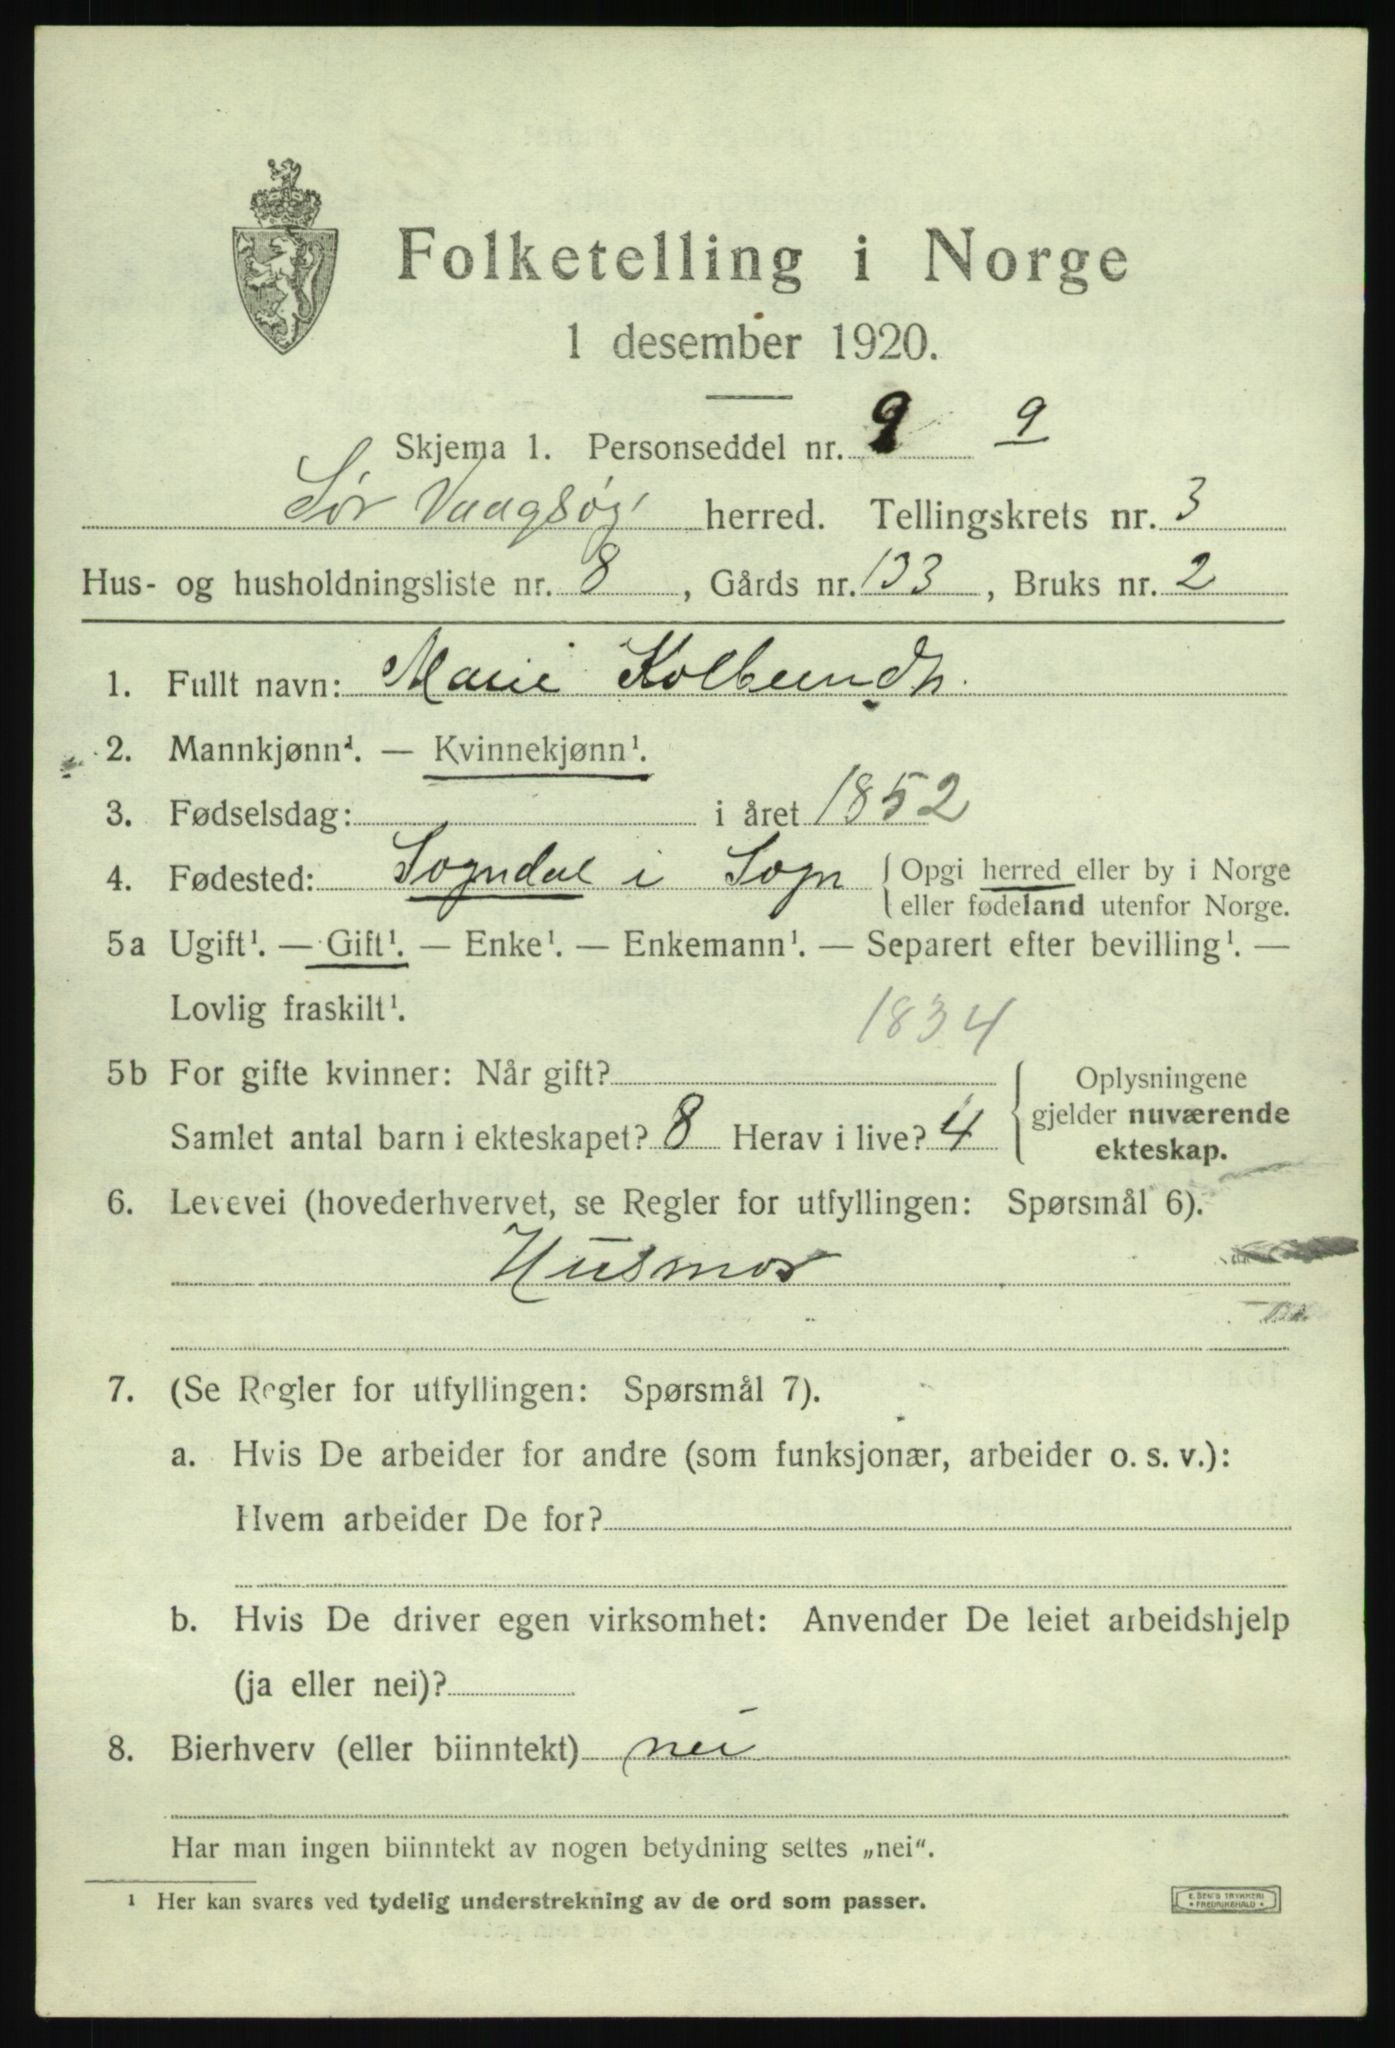 Folketelling i Norge
1 desember 1920.
Skjema 1. Personseddel nr. 9 9
Sør Vaagsøy herred. Tellingskrets nr. 3
Hus- og husholdningsliste nr. 8, Gårds nr. 133, Bruks nr. 2
1. Fullt navn: Marie
2. Mannkjønn¹. — Kvinnekjønn¹.
3. Fødselsdag: i året 1852
4. Fødested: Sogndal i Sogn { Opgi herred eller by i Norge
eller fødeland utenfor Norge.
5a Ugift¹. — Gift¹. — Enke¹. — Enkemann¹. — Separert efter bevilling¹. —
Lovlig fraskilt¹.
1834
5b For gifte kvinner: Når gift?
Samlet antal barn i ekteskapet? 8 Herav i live? 4
{ Oplysningene
gjelder nuværende
ekteskap.
6. Levevei (hovederhvervet, se Regler for utfyllingen: Spørsmål 6).
Husmor
7. (Se Regler for utfyllingen: Spørsmål 7).
a. Hvis De arbeider for andre (som funksjonær, arbeider o. s. v.):
Hvem arbeider De for?
b. Hvis De driver egen virksomhet: Anvender De leiet arbeidshjelp
(ja eller nei)?
8. Bierhverv (eller biinntekt) nei
Har man ingen biinntekt av nogen betydning settes „nei“.
¹ Her kan svares ved tydelig understrekning av de ord som passer.
E. SEM'S TRYKKERI
* FREDRIKSHALD *